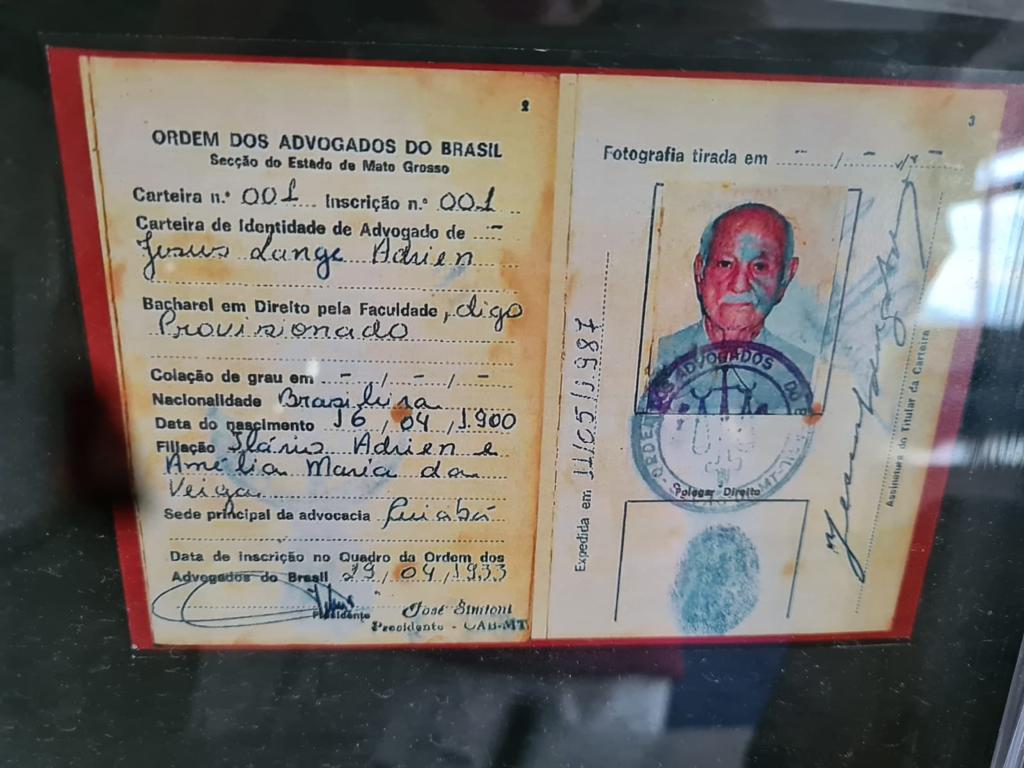 2
ORDEM DOS ADVOGADOS DO BRASIL
Secção do Estado de Mato Grosso
Carteira n.º 001 Inscrição n.º 001
Carteira de Identidade de Advogado de
Jesus Lange Adrien
Bacharel em Direito pela Faculdade, digo
Provisionado
Colação de grau em - / - / -
Nacionalidade Brasileira
Data do nascimento 16 / 04 / 1900
Filiação Ilário Adrien e
Amélia Maria da
Veiga
Sede principal da advocacia Cuiabá
Data de inscrição no Quadro da Ordem dos
Advogados do Brasil 29 / 04 / 1933
Presidente
José Simioni
Presidente - OAB-MT
3
Fotografia tirada em - / - / -
Expedida em 11/05/1987
ORDEM DOS ADVOGADOS DO B
MT
Polegar Direito
Assinatura do Titular da Carteira